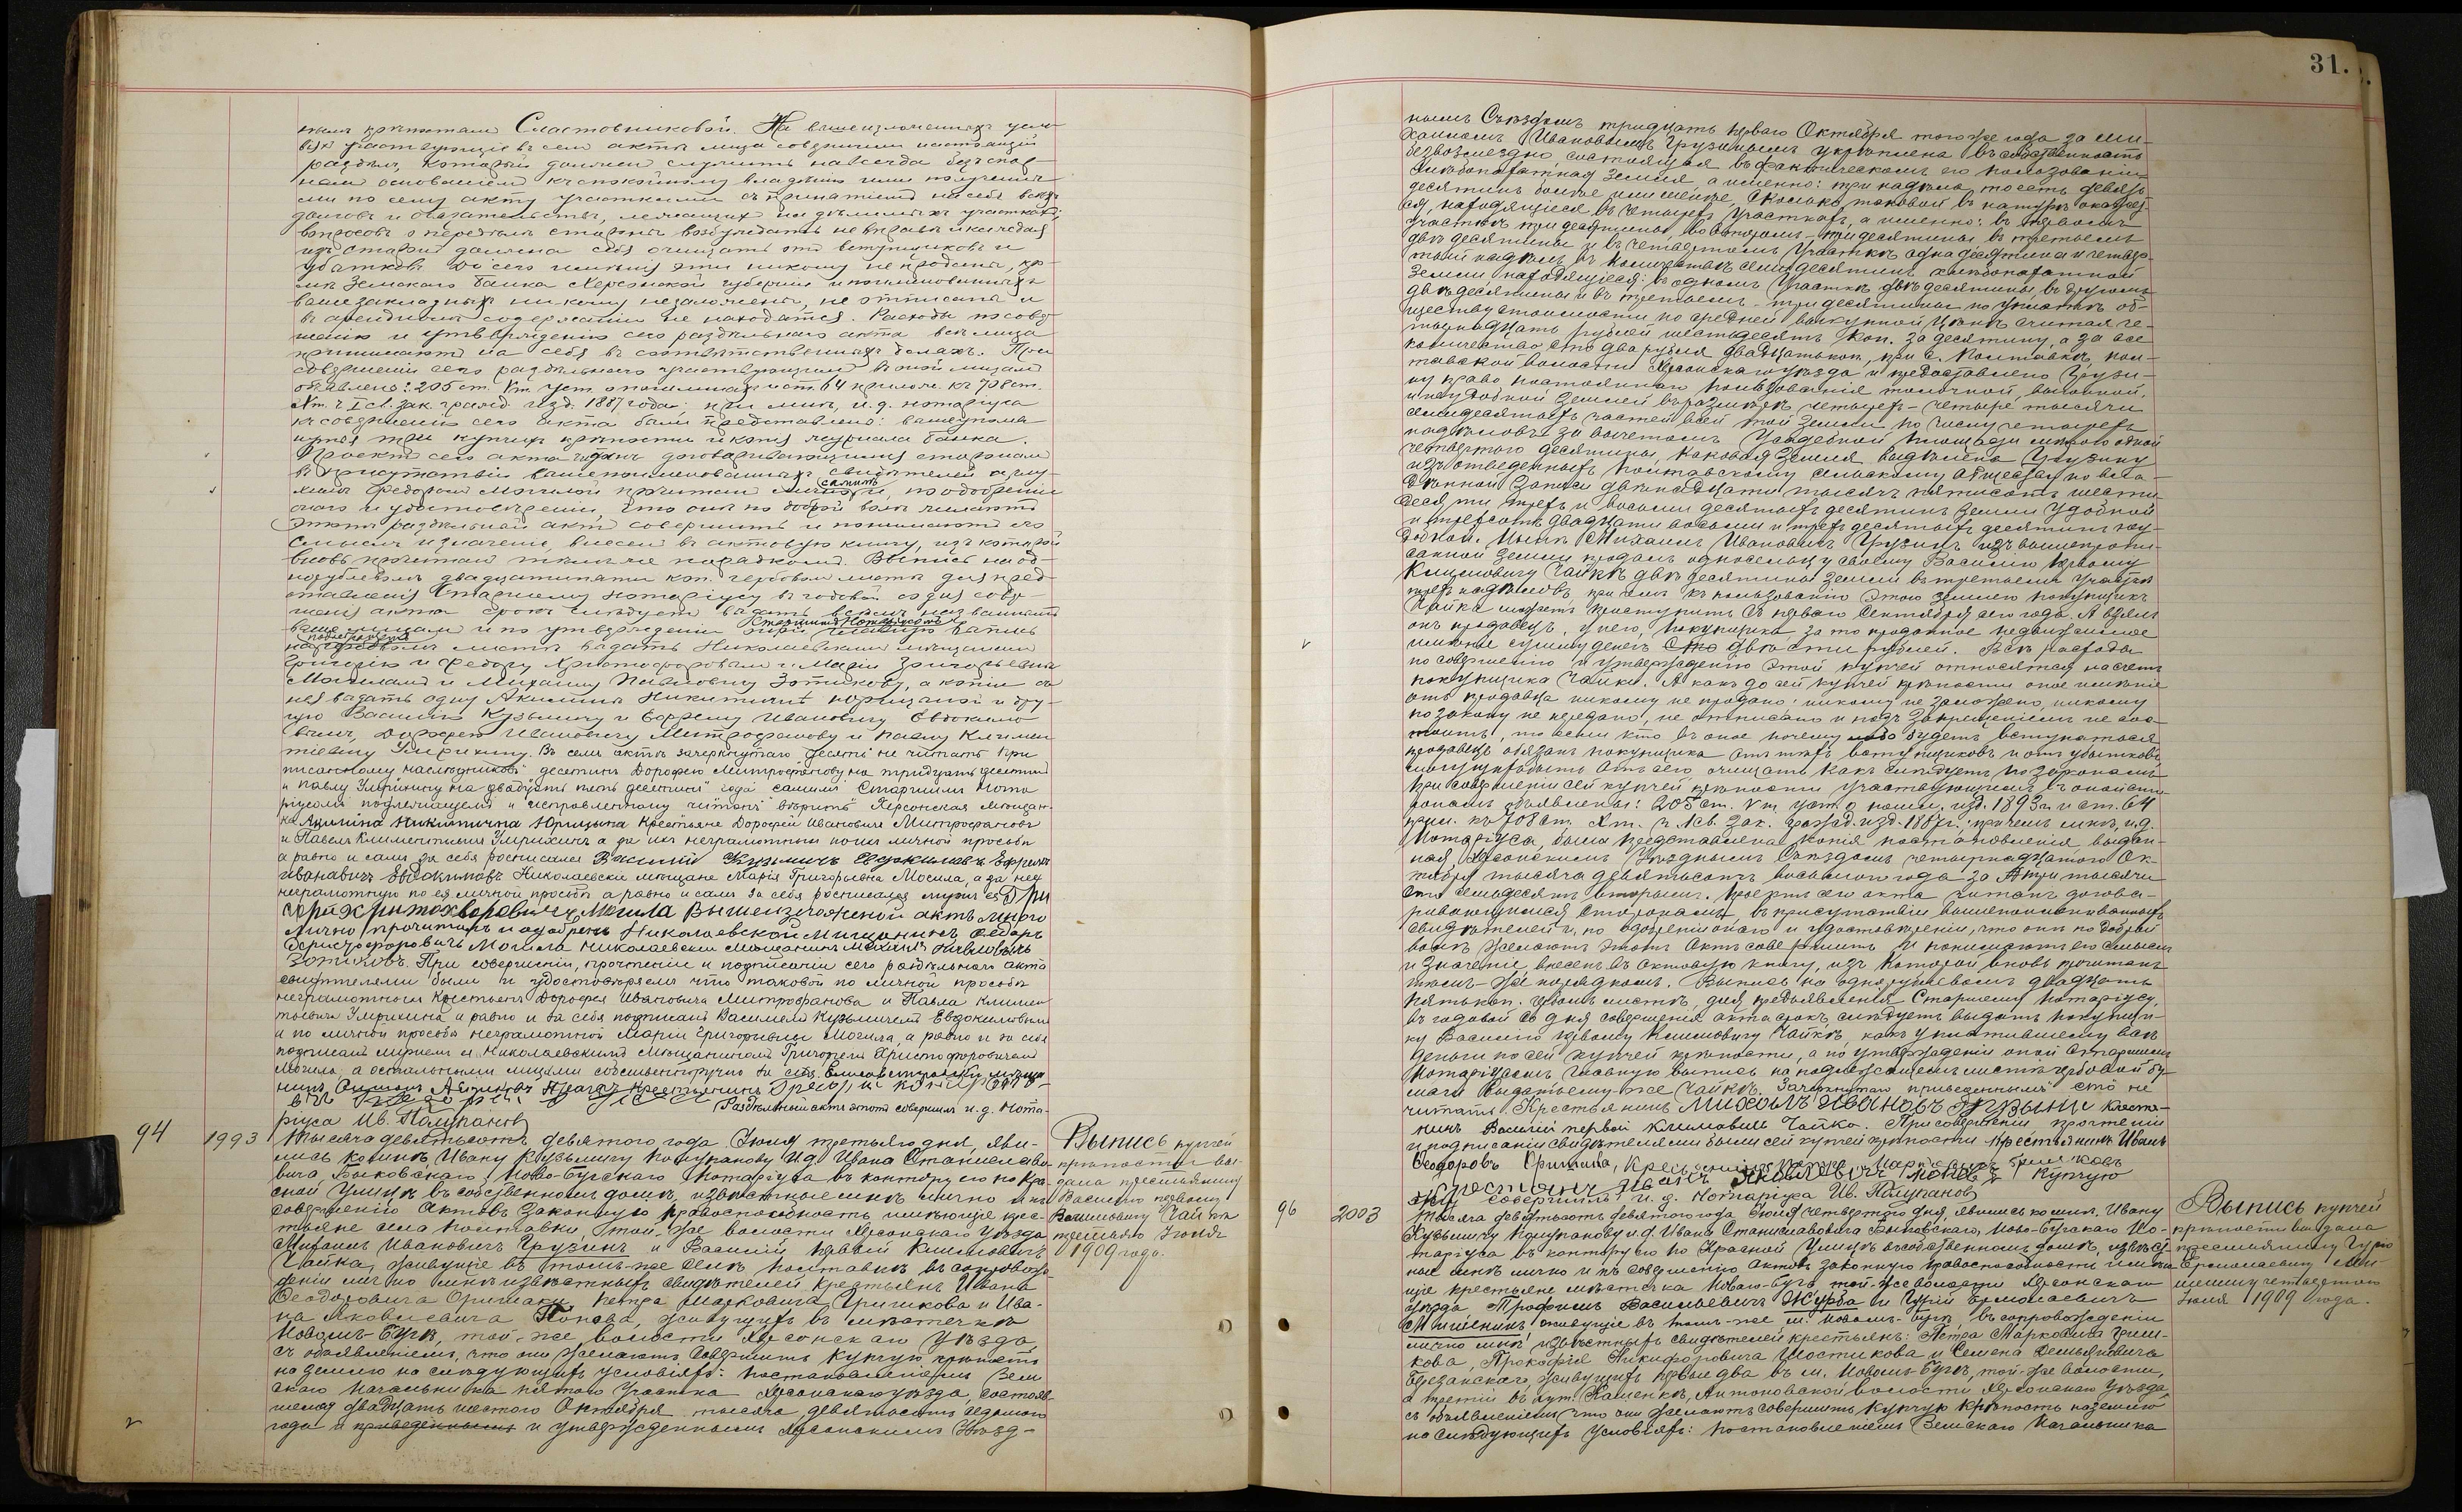 31.
ными крѣпостями Сластовниковой. На вышеизложенныхъ усло-
віяхъ участвующіе въ семъ актѣ лица совершили настоящій
раздѣлъ, который долженъ служить навсегда безспор-
нымъ основаніемъ къ спокойному владѣнію ими получен-
ми по сему акту участками съ принятіемъ на себя всѣхъ
долговъ и обязательствъ, лежащихъ на дѣлимыхъ участкахъ;
вопросовъ о передѣлѣ стороны возбуждать не вправѣ и каждая
изъ сторонъ должна себя очищать отъ вступщиковъ и
убытковъ. До сего имѣнія эти никому не проданы, кро-
мѣ Земскаго банка Херсонской губерніи и поименованныхъ
выше закладныхъ никому не заложены, не отписаны и
въ арендномъ содержаніи не находятся. Расходы по совер-
шенію и утвержденію сего раздѣльнаго акта всѣ лица
принимаютъ на себя въ соотвѣтственныхъ доляхъ. При
совершеніи сего раздѣльнаго участвующимъ въ ономъ лицамъ
объявлено: 205 ст. Vт. уст. о пошлинахъ и ст. 64 прилож. къ 708 ст.
Хт. ч. I св. зак. гражд. изд. 1887 года; при чемъ, и. д. нотаріуса
къ совершенію сего акта были представлены: вышеупомя-
нутыя три купчія крѣпости и копія журнала банка.
Проектъ сего акта читанъ договаривающимся сторонамъ
въ присутствіи вышепоименованныхъ свидѣтелей а глу-
химъ Федоромъ Могилой прочитанъ лично самимъ и, по одобреніи
онаго и удостовѣреніи, что они по доброй волѣ желаютъ
этотъ раздѣльный актъ совершить и понимаютъ его
смыслъ и значеніе, внесенъ въ актовую книгу, изъ которой
вновь прочитанъ тѣмъ же порядкомъ. Выпись на од-
норублевомъ двадцатипяти коп. гербовомъ листѣ для пред-
ставленія Старшему нотаріусу въ годовой со дня совер-
шенія акта срокъ слѣдуетъ выдать всѣмъ названнымъ
выше лицамъ и по утвержденіи Старшимъ Нотаріусомъ главную выпись
на подлежащемъ листѣ выдать Николаевскимъ мѣщанамъ
Григорію и Федору Христофоровымъ и Маріи Григорьевнѣ
Могиламъ и Михаилу Павловичу Зотикову, а копіи съ
нея выдать одну Акилинѣ Никитичнѣ Юрицыной и дру-
гую Василію Кузьмичу и Ефрему Ивановичу Евдокимо-
вымъ, Дорофею Ивановичу Митрофанову и Павлу Климен-
тіевичу Умрихину. Въ семъ актѣ зачеркнутаго „десять" не читать при-
писанному наслѣдниковъ десятинъ Дорофею Митрофанову на тридцать десятинъ
и Павлу Умрихину на двадцать пять десятинъ „года" „самимъ" „Старшимъ Нота-
ріусомъ" „подлежащемъ" и исправленному „читанъ" вѣрить. Херсонская мѣщан-
ка Акилина Никитична Юрицына Крестьяне Дорофей Ивановичъ Митрофановъ
и Павелъ Климентьевичъ Умрихинъ а за нихъ неграмотныхъ по ихъ личной просьбѣ
а равно и самъ за себя росписался Василій Кузьмичъ Евдокимовъ Ефремъ
Ивановичъ Евдокимовъ Николаевскіе мѣщане Марія Григорьевна Могила, а за нея
неграмотную по ея личной просьбѣ а равно и самъ за себя росписался мужъ ея Гри
горій Христохворовичъ Могила Вышеизложеной актъ мною
лично прочитанъ и одобренъ Николаевской Мищанинъ Федоръ
Христофоровичъ Могила Николаевски Мещанинъ Михаилъ Павловичъ
Зотиковъ. При совершеніи, прочтеніи и подписаніи сего раздѣльнаго акта
свидѣтелями были и удостовѣряемъ что таковой по личной просьбѣ
неграмотныхъ крестьянъ Дорофея Ивановича Митрофанова и Павла Климен-
тьевича Умрихина а равно и за себя подписанъ Василіемъ Кузьмичемъ Евдокимовымъ
и по личной просьбѣ неграмотной Маріи Григорьевны Могила, а равно и за себя
подписанъ мужемъ ея Николаевскимъ мѣщаниномъ Григоріемъ Христофоровичемъ
Могила, а остальными лицами собственноручно за себя
Раздѣльный актъ этотъ совершилъ и. д. Нота-
ріуса Ив. Полупановъ
94 1993 Тысяча девятьсотъ девятого года Іюля третьяго дня, яви-
лись ко мнѣ, Ивану Кузьмичу Полупанову И. д. Ивана Станиславо-
вича Быковскаго, Ново-Бугскаго Нотаріуса въ контору его по Кра-
сной Улицѣ въ собственномъ домѣ, извѣстные мнѣ лично и къ
совершенію Актовъ Законную правоспособность имѣющіе крес-
тьяне села Полтавки, той-же волости Херсонскаго Уѣзда
Михаилъ Ивановичъ Грузинъ и Василій первый Климовичъ
Чайка, живущіе въ томъ-же селѣ Полтавкѣ въ сопровож-
деніи лично мнѣ извѣстныхъ свидѣтелей крестьянъ: Ивана
Ѳеодоровича Оришаки, Петра Марковича Гришкова и Ива-
на Яковлевича Попова, живущихъ въ мѣстечкѣ
Новомъ-Бугѣ, той-же волости Херсонскаго Уѣзда
съ объявленіемъ, что они желаютъ совершить купчую крѣпость
на землю на слѣдующихъ условіяхъ: постановленіемъ Зем-
скаго Начальника пятаго Участка Херсонскаго уѣзда, состояв-
шемся двадцать шестого Октября тысяча девятьсотъ седьмого
года и приведеннымъ и утвержденнымъ Херсонскимъ Уѣзд-
Выпись купчей
крѣпости вы-
дана крестьянину
Василію первому
Климовичу Чайкѣ
третьяго Іюля
1909 года.
нымъ Съѣздомъ тридцать перваго Октября того же года за Ми-
хаиломъ Ивановымъ Грузиномъ укрѣплена въ собственность
безвозмездно, состоящая въ фактическомъ его пользованіи
хлѣбопахатная земля, а именно: три надѣла, то есть девять
десятинъ болѣе или менѣе, сколько таковой въ натурѣ окажет-
ся, находящіеся въ четырехъ участкахъ, а именно: въ первомъ
участкѣ три десятины, во второмъ - три десятины, въ третьемъ
двѣ десятины и въ четвертомъ Участкѣ одна десятина и четвер-
тый надѣлъ въ количествѣ семи десятинъ хлѣбопахатной
земли находящіеся: въ одномъ Участкѣ двѣ десятины, въ другомъ
двѣ десятины и въ третьемъ - три десятины по уплатѣ об-
ществу стоимости по средней выкупной цѣнѣ считая че-
тырнадцать рублей шестьдесятъ коп. за десятину, а за все
количество сто два рубля двадцать коп., при с. Полтавкѣ, Пол-
тавской волости Херсонскаго уѣзда и предоставлено Грузи-
ну право постояннаго пользованія толочной, выгонной,
и неудобной землей въ размѣрѣ четырехъ - четыре тысячи
семидесятыхъ частей всей той земли по числу четырехъ
надѣловъ за вычетомъ Усадебной площади много одной
четвертого десятины, каковая земля выдѣлена Грузину
изъ отведенныхъ Полтавскому сельскому обществу по вла-
дѣнной Записи двѣнадцати тысячъ пятисотъ шести-
десяти трехъ и восьми десятыхъ десятинъ земли удобной
и трехсотъ двадцати восьми и трехъ десятыхъ десятинъ неу-
добной. Нынѣ Михаилъ Ивановичъ Грузинъ изъ вышепропи-
санной земли продалъ односельцу своему Василію Первому
Климовичу Чайкѣ двѣ десятины земли въ третьемъ участкѣ
трехъ надѣловъ, при чемъ къ пользованію этою землею покупщикъ
Чайка можетъ приступить съ перваго Сентября сего года. А взялъ
онъ продавецъ, у него, покупщика за то проданное недвижимое
имѣніе сумму денегъ сто двѣсти рублей. Всѣ расходы
по совершенію и утвержденію этой купчей относятся на счетъ
покупщика Чайки. А какъ до сей купчей крѣпости оное имѣніе
отъ продавца никому не продано, никому не заложено, никому
по закону не передано, не отписано и подъ запрещеніемъ не сос-
тоитъ, то если кто въ оное почему либо будетъ вступаться
продавецъ обязанъ покупщика отъ тѣхъ вступщиковъ и отъ убытковъ
могущихъ быть отъ сего, очищать какъ слѣдуетъ по законамъ.
При совершеніи сей купчей крѣпости участвующимъ въ оной сто-
ронамъ объявлены: 205 ст. Vт. уст. о пошл. изд. 1893 г. и ст. 64
прил. къ 708 ст. Хт. ч. 1 св. зак. гражд. изд. 1887 г., при чемъ мнѣ, и. д.
Нотаріуса, была представлена копія постановленія, выдан-
ная Херсонскимъ Уѣзднымъ Съѣздомъ четырнадцатого Ок-
тября тысяча девятьсотъ восьмого года за № три тысячи
сто семьдесятъ вторымъ. Проектъ сего акта читанъ догова-
ривающимся сторонамъ, въ присутствіи вышепоименованныхъ
свидѣтелей и, по одобреніи онаго и удостовѣреніи, что они по доброй
волѣ желаютъ этотъ актъ совершить и понимаютъ его смыслъ
и значеніе, внесенъ въ актовую книгу, изъ которой вновь прочитанъ
тѣмъ-же порядкомъ. Выпись на однорублевомъ двадцать
пять коп. герб. листѣ, для предъявленія Старшему Нотаріусу,
въ годовой со дня совершенія акта срокъ, слѣдуетъ выдать покупщи-
ку Василію первому Климовичу Чайкѣ, какъ уплатившему всѣ
деньги по сей купчей крѣпости, а по утвержденіи оной Старшимъ
Нотаріусомъ главную выпись на подлежащемъ листѣ гербовой бу-
маги выдать ему-же Чайкѣ. Зачеркнутаго „приведеннымъ" „сто" не
читать. Крестьянинъ Михаилъ Ивановъ Грузинъ Кресть-
нинъ Василій первой Климовичъ Чайко. При совершеніи прочтеніи
и подписаніи свидѣтелями были сей купчей крѣпости Крестьянинъ Иванъ
Ѳеодоровъ Оришака, Крестьянинъ Петръ Марковичъ Гришковъ
Крестьянинъ Иванъ Яковлевичъ Поповъ Купчую
эту совершилъ и. д. Нотаріуса Ив. Полупановъ
96 2003 Тысяча девятьсотъ девятого года Іюля четвертого дня, явились ко мнѣ, Ивану
Кузьмичу Полупанову и. д. Ивана Станиславовича Быковскаго, Ново-Бугскаго Но-
таріуса въ контору его по Красной Улицѣ въ собственномъ домѣ, извѣст-
ные мнѣ лично и къ совершенію Актовъ законную правоспособность имѣю-
щіе крестьяне мѣстечка Новаго-Буга, той-же волости Херсонскаго
уѣзда Трофимъ Васильевичъ Журба и Гурій Ермолаевичъ
Мишенинъ, живущіе въ томъ-же м. Новомъ-Бугѣ, въ сопровожденіи
лично мнѣ извѣстныхъ свидѣтелей крестьянъ: Петра Марковича Гриш-
кова, Прокофія Никифоровича Шостикова и Семена Демьяновича
Бузанскаго, живущихъ первые два въ м. Новомъ-Бугѣ, той-же волости,
а третій въ хут. Каменкѣ, Антоновской волости Херсонскаго Уѣзда,
съ объявленіемъ, что они желаютъ совершить купчую крѣпость на землю
на слѣдующихъ условіяхъ: постановленіемъ Земскаго Начальника
Выпись купчей
крѣпости выдана
крестьянину Гурію
Ермолаевичу Ми-
шенину четвертого
Іюля 1909 года.